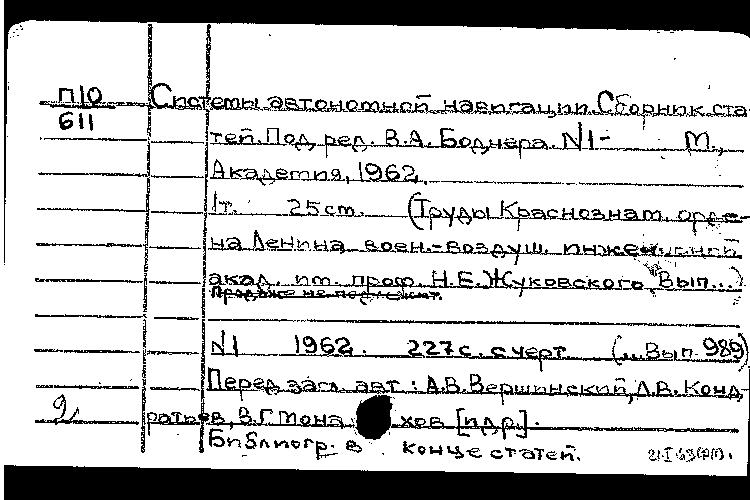 П10 Системы автономной навигации. Сборник ста-
611 тей. Под ред. В.А. Боднера. №1- М.,
Академия, 1962.
1т. 25 cm. (Труды Краснознам. орде-
на Ленина воен.-воздуш. инженерной
акад. им. проф. Н.Е. Жуковского. Вып...)
Продаже не подлежит.
№1 1962. 227с. с черт. (... Вып. 989)
Перед загл. авт.: А.В. Вершинский, Л.В. Конд
2 ратьев, В.Г. Мона хов [и др.].
Библиогр. в конце статей.